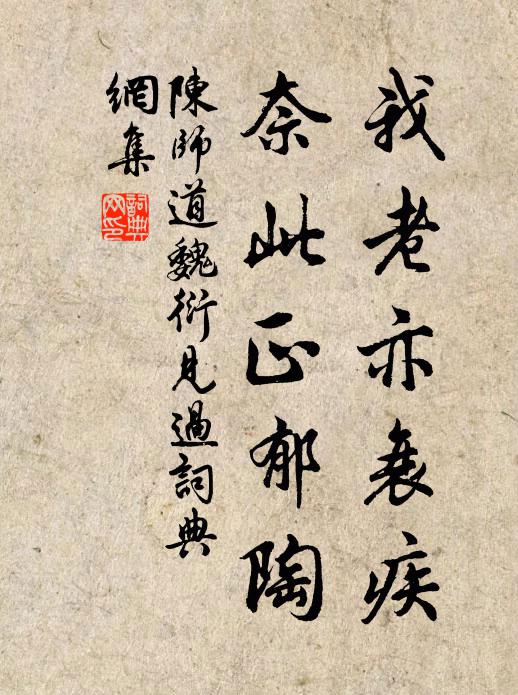 我老亦衰疾
奈此正郁陶
陳師道魏衍見過詞典
網集
詞典
网印